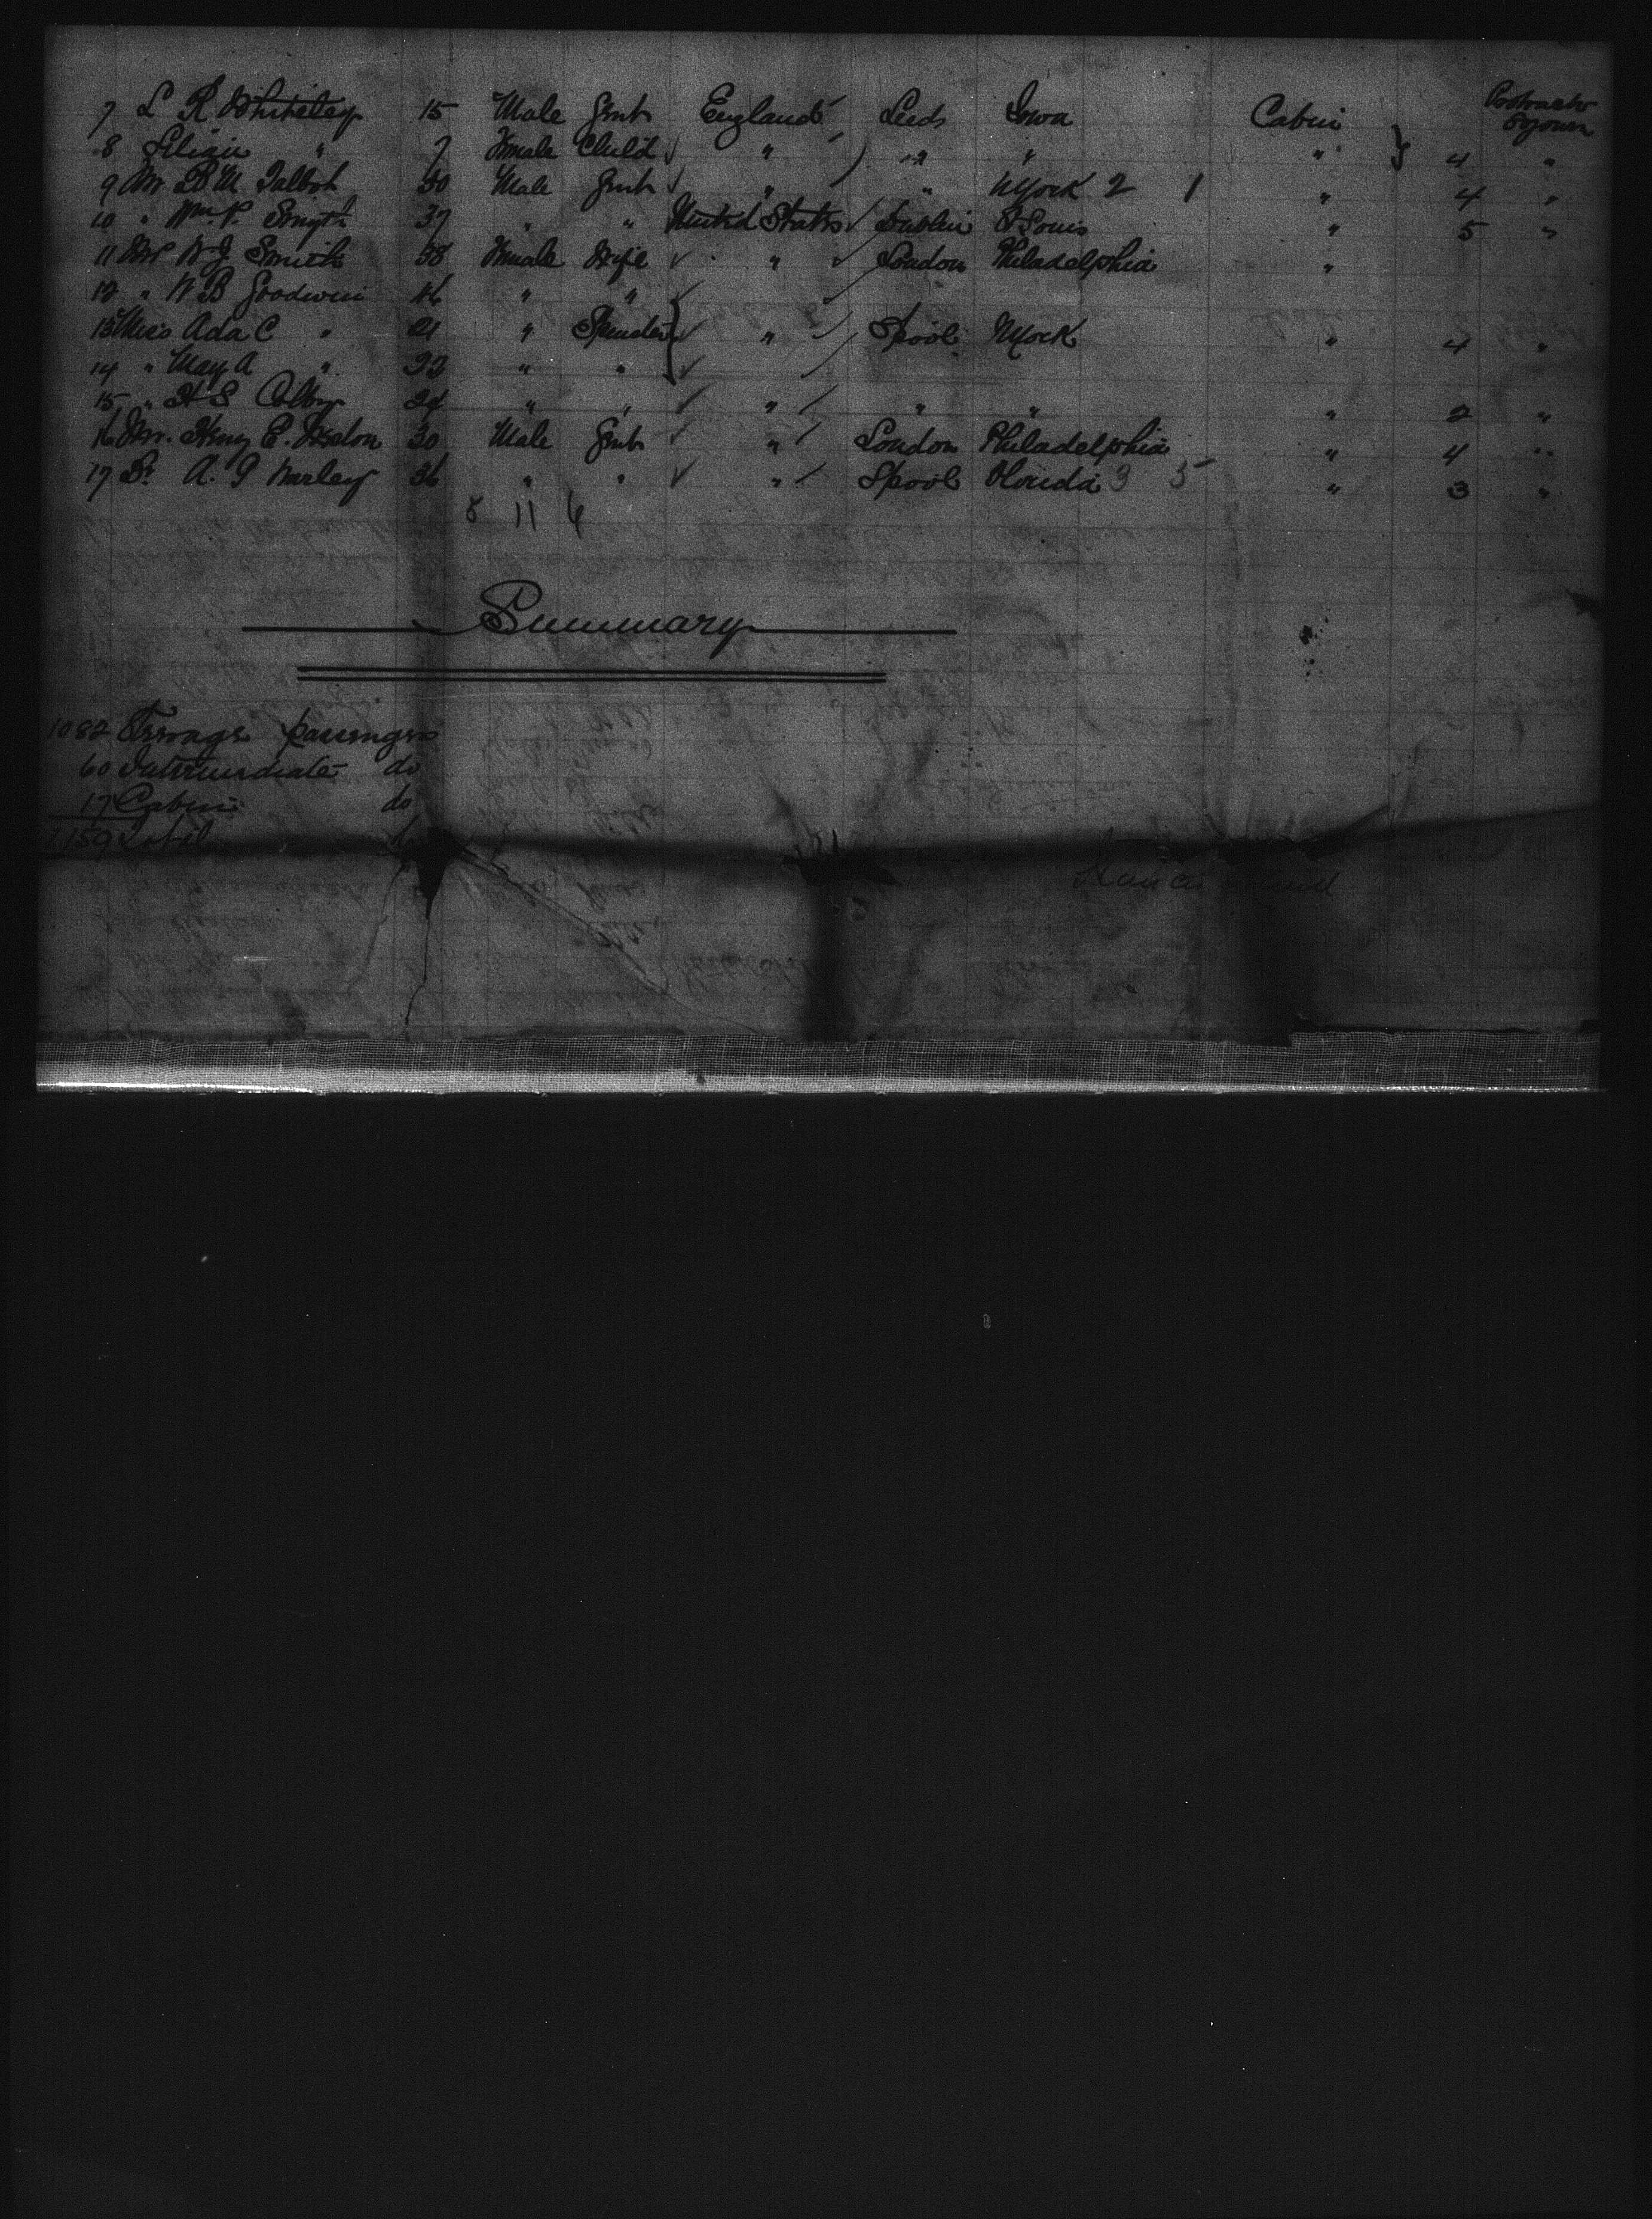 7 L R Whiteley 15 Male Gent England Leeds Iowa Cabin Protracted Sojourn
8 Lilian " 7 Female Child " " " " 4 "
9 Mr B M Talbot 30 Male Gent " " NYork 2 1 " 4 "
10 " Wm P. Smyth 37 " " United States Dublin St Louis " 5 "
11 Mrs W J Smith 38 Female Wife " London Philadelphia "
12 " W B Goodwin 46 " "
13 Miss Ada C " 21 " Spinster " Lpool NYork " 4 "
14 " May A " 22 " "
15 " H S Colby 24 " " " " " " 2 "
16 Mr. Henry E. 30 Male Gent " London Philadelphia " 4 "
17 Dr A. J 36 " " " Lpool Florida 3 5 " 3 "
8 11 6
Summary
1082 Steerage passengers
60 Intermediate do
17 Cabin do
1159 Total do